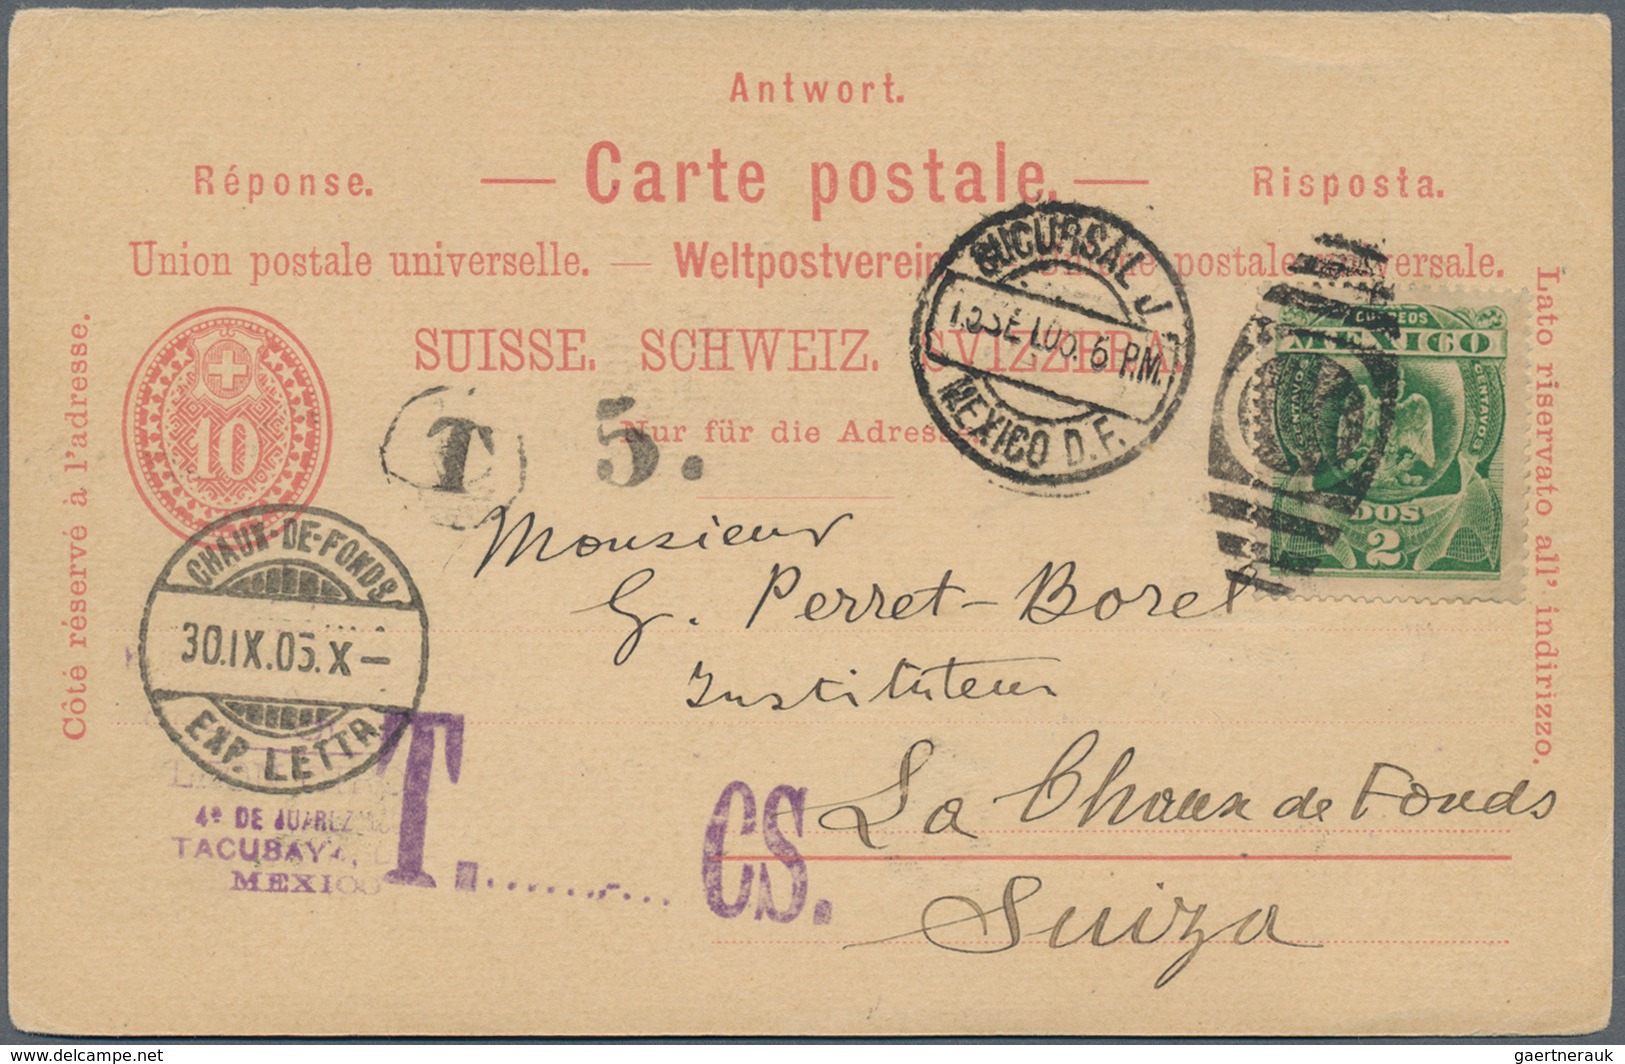 Antwort.
Réponse. — Carte postale. — Risposta.
Union postale universelle. — Weltpostverein postale universale.
SUISSE. SCHWEIZ. SVIZZERA.
Nur für die Adresse.
Côté réservé à l'adresse.
Lato riservato all' indirizzo.
10
T 5.
SUCURSAL J
6 P.M.
MEXICO D. F.
CORREOS
MEXICO
CENTAVOS
DOS
2
Monsieur
G. Perret-Borel
Instituteur
La Chaux de Fonds
Suiza
CHAUX-DE-FONDS
30.IX.05.X–
EXP. LETTR.
4ª DE JUAREZ
TACUBAYA,
MEXICO
T. CS.
www.delcampe.net
gaertnerauk